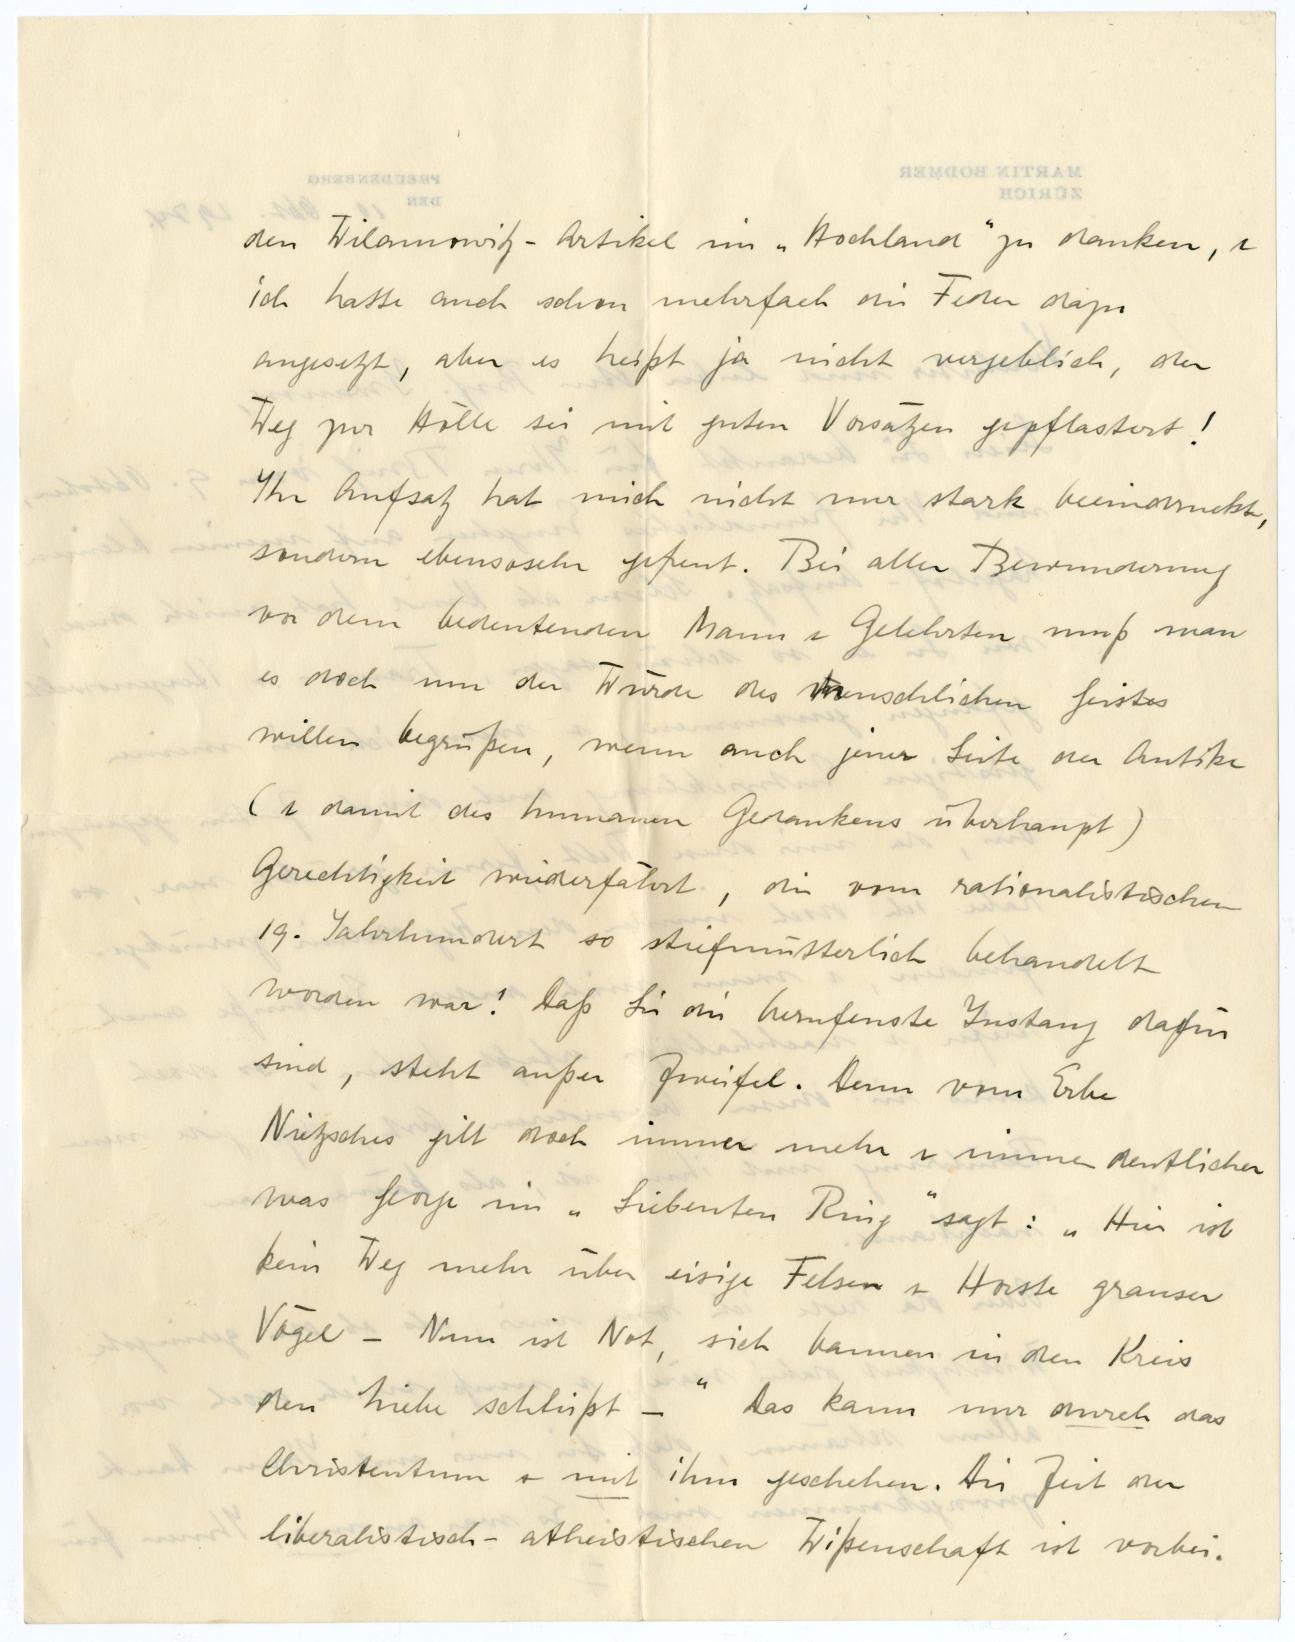 den Wilamowitz-Artikel im „Hochland" zu danken, &
ich hatte auch schon mehrfach die Feder dazu
angesetzt, aber es heißt ja nicht vergeblich, der
Weg zur Hölle sei mit guten Vorsätzen gepflastert!
Ihr Aufsatz hat mich nicht nur stark beeindruckt,
sondern ebensosehr gefreut. Bei aller Bewunderung
vor dem bedeutenden Mann & Gelehrten muß man
es doch um der Würde des menschlichen Geistes
willen begrüßen, wenn auch jener Seite der Antike
(& damit des humanen Gedankens überhaupt)
Gerechtigkeit wiederfährt, die vom rationalistischen
19. Jahrhundert so stiefmütterlich behandelt
worden war! Daß Sie die berufenste Instanz dafür
sind, steht außer Zweifel. Denn vom Erbe
Nietzsches gilt doch immer mehr & immer deutlicher
was George im „Siebenten Ring" sagt: „Hier ist
kein Weg mehr über eisige Felsen & Horste grauser
Vögel – Nun ist Not, sich bannen in den Kreis
den Liebe schließt –" Das kann nur durch das
Christentum & mit ihm geschehen. Die Zeit der
liberalistisch-atheistischen Wißenschaft ist vorbei.
MARTIN BODMER
ZÜRICH
FREUDENBERG
DEN